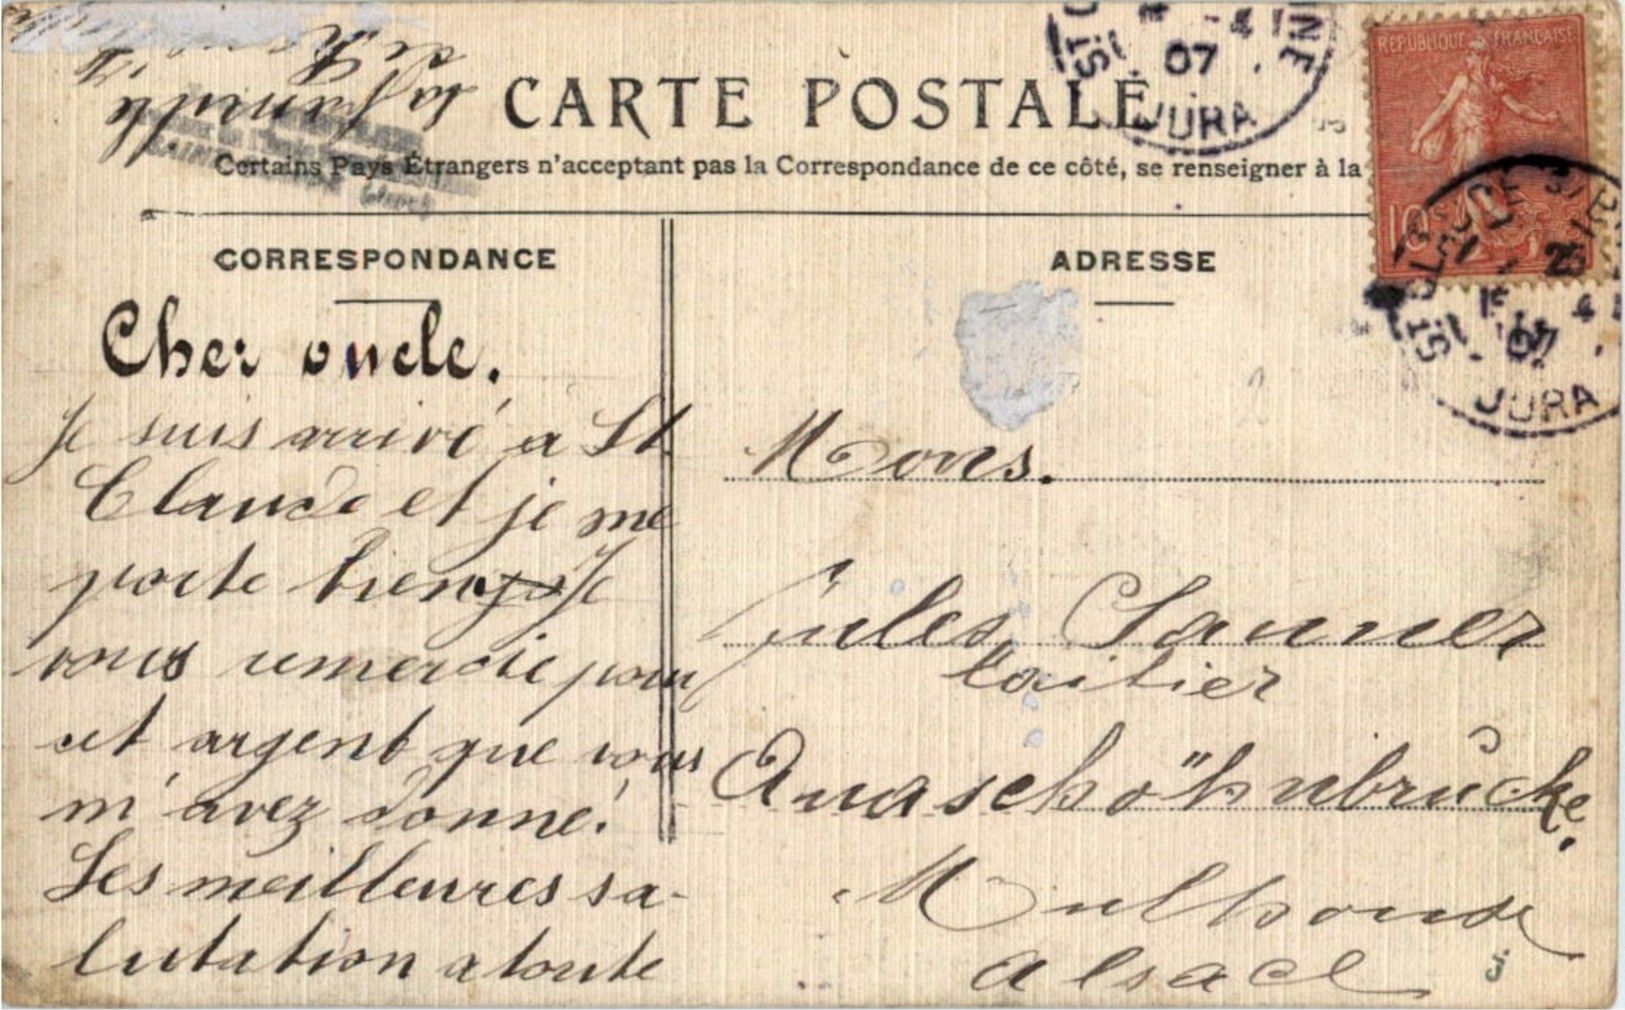 CARTE POSTALE
Certains Pays Étrangers n'acceptant pas la Correspondance de ce côté, se renseigner à la
CORRESPONDANCE
Cher oncle.
Je suis arrivé a St
Claude et je me
porte bien Je
vous remercie pour
cet argent que vous
m'avez donné.
Les meilleures sa-
lutation a toute
la famille
de
ADRESSE
Mons.
Jules Sauner
laitier
Mulhouse
Alsace
REPUBLIQUE FRANÇAISE
10
07
JURA
25
07
JURA